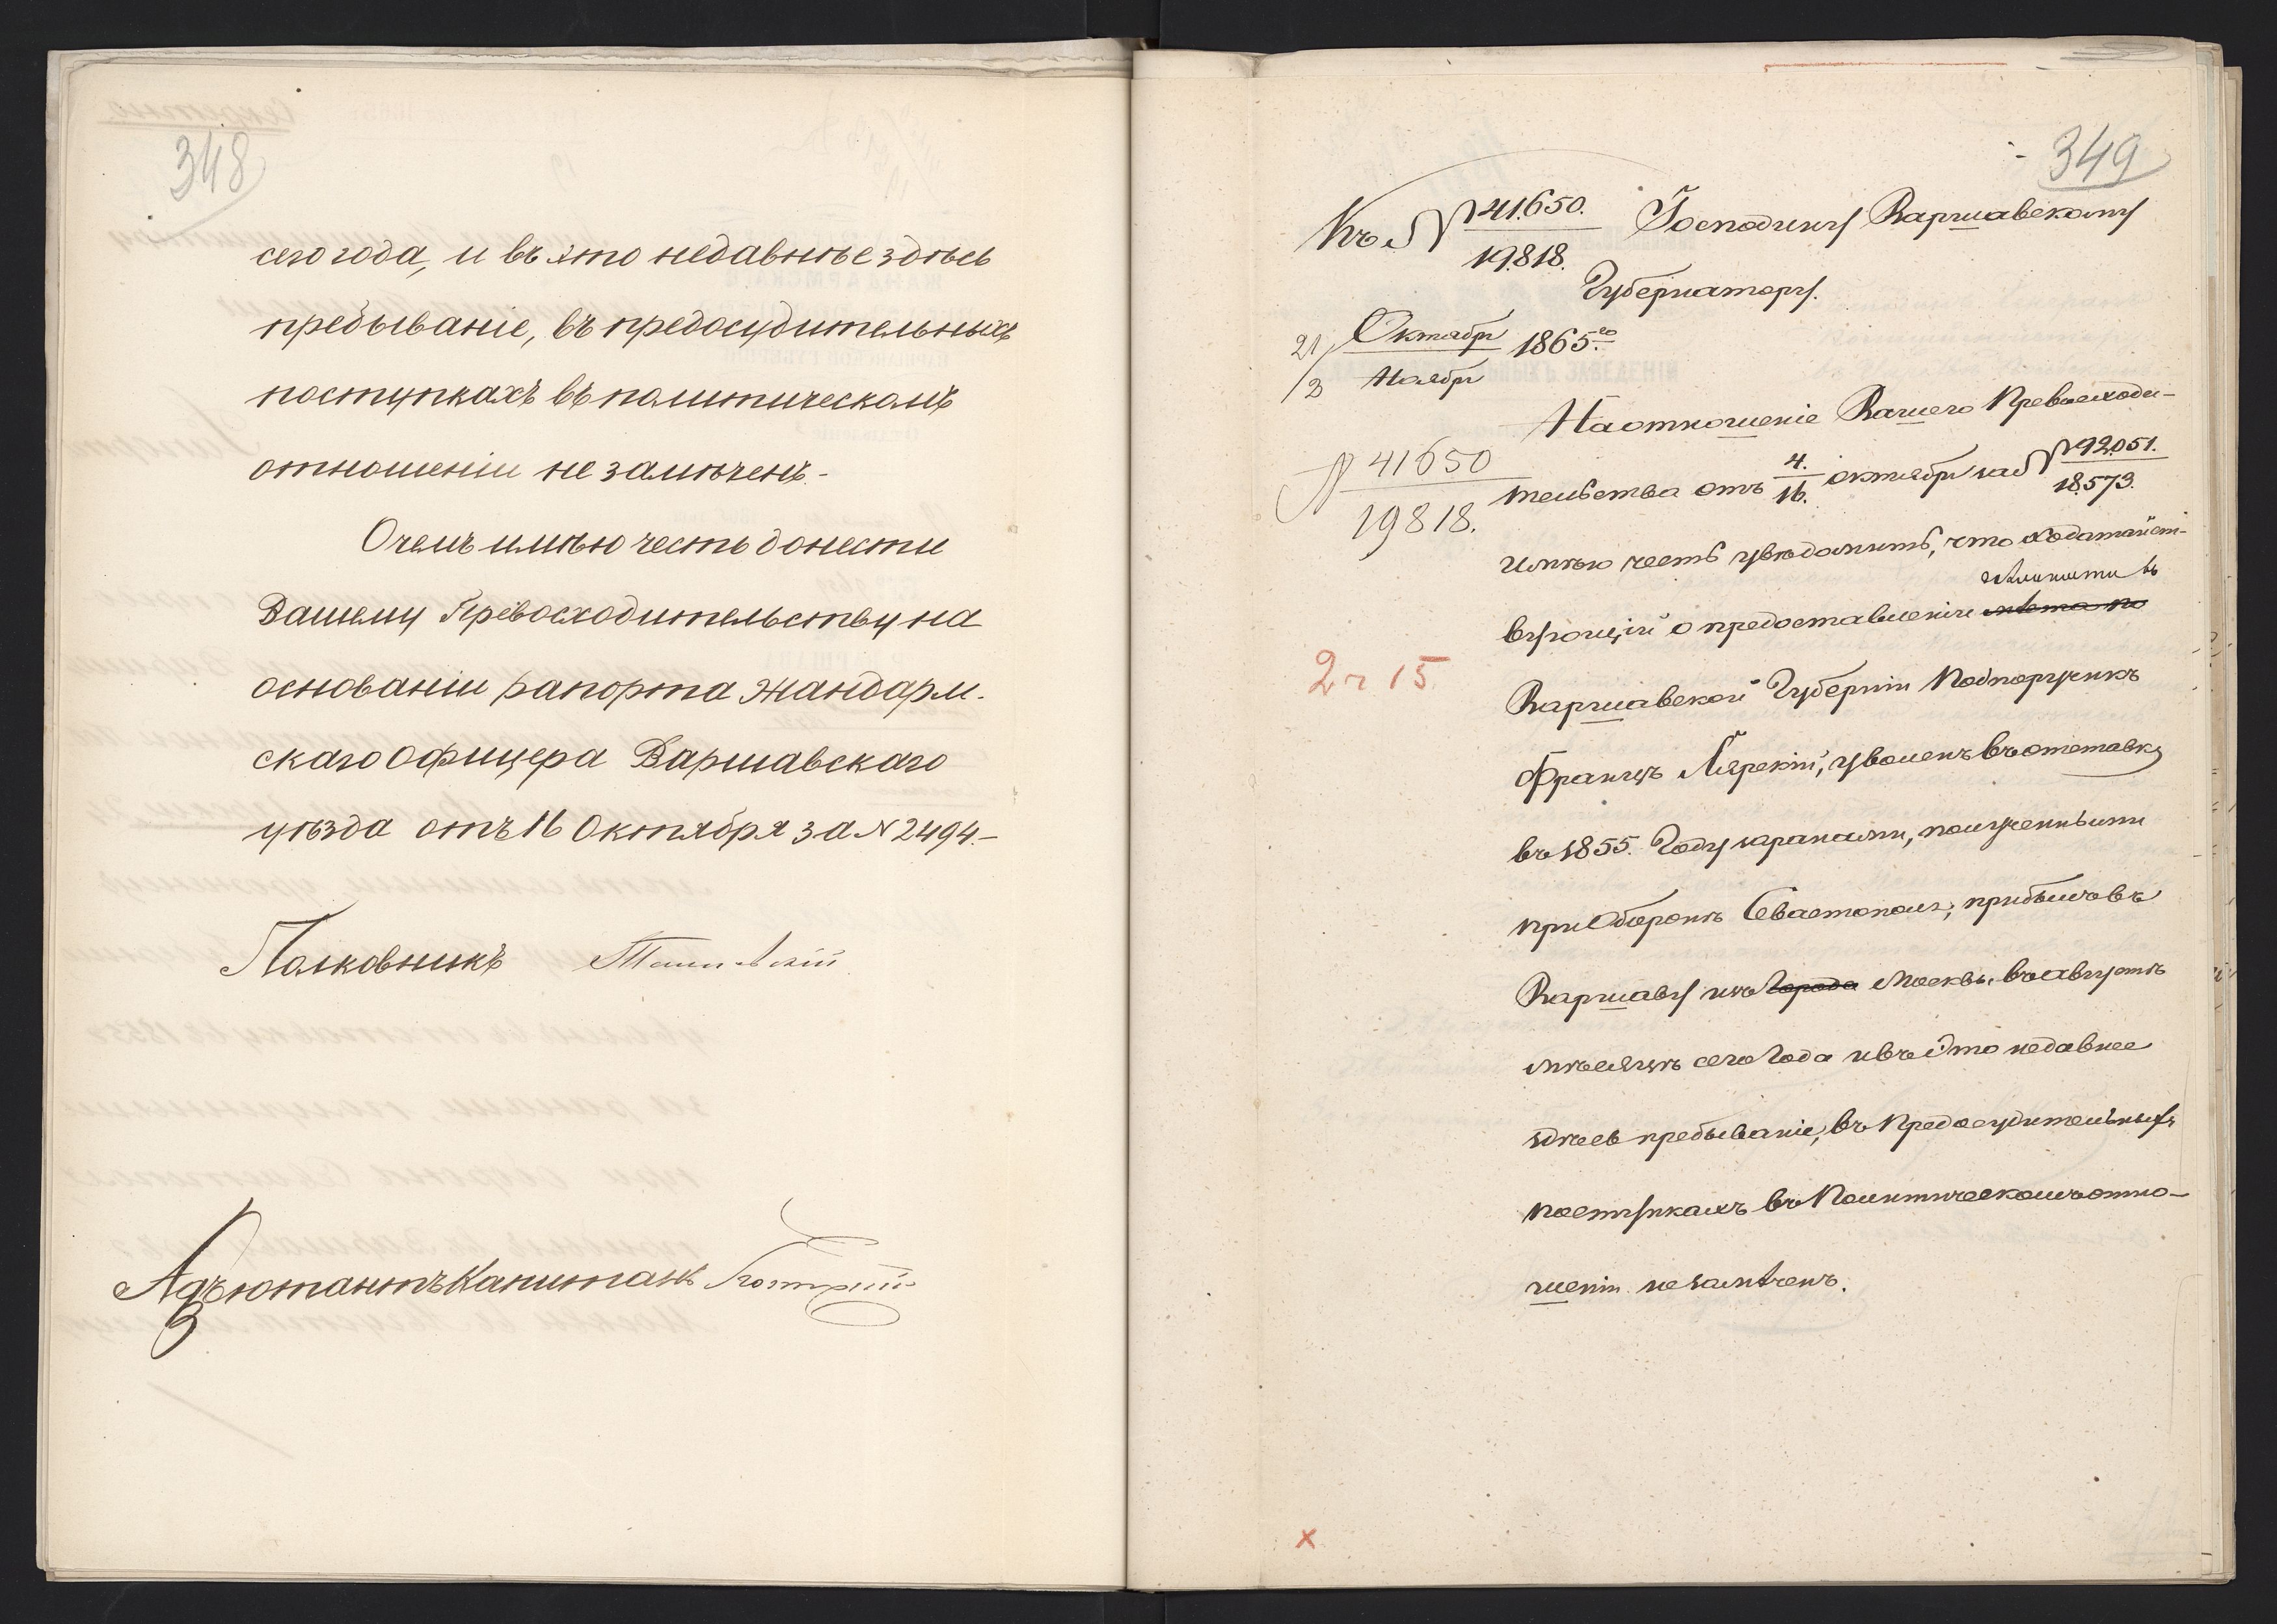 348
сего года, и въ это недавнѣе здѣсь
пребываніе, въ предосудительныхъ
поступкахъ въ политическомъ
отношеніи не замѣченъ.-
Очемъ имѣю честь донести
Вашему Превосходительству на
основаніи рапорта Жандарм-
скаго Офицера Варшавскаго
уѣзда отъ 16 Октября за N 2494.-
Полковникъ
Адъютантъ Капитанъ
349
Къ N 41.650. / 19.818.
Господину Варшавскому
Губернатору.
21/2 Октября / Ноября 1865.го
N 41650 / 19818.
2 ч 15
На отношеніе Вашего Превосходи-
тельства отъ 4./16. октября за N 92051. / 18.573.
имѣю честь увѣдомить, что ходатайст-
вующій о предоставленіи мѣста по
въ
Варшавской Губерніи Подпоручикъ
Францъ уволенъ въ отставку
въ 1855. Году за ранами, полученными
при Оборонѣ Севастополя; прибылъ въ
Варшаву изъ города Москвы въ августѣ
мѣсяцѣ сего Года и въ это недавнее
здѣсь пребываніе, въ Предосудительныхъ
поступкахъ въ Политическомъ отно-
шеніи незамѣченъ.
x